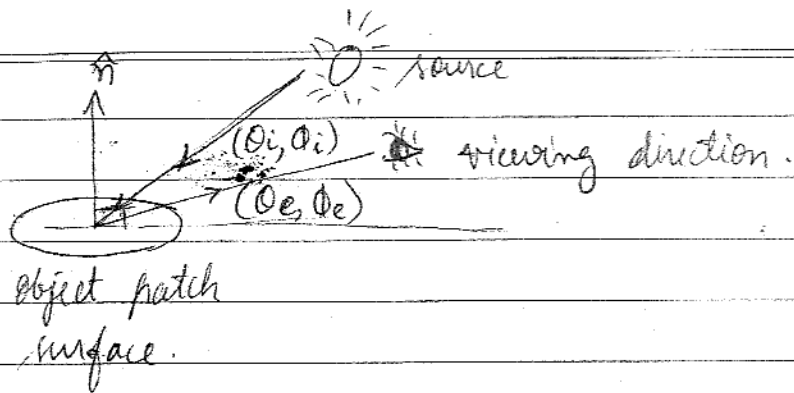 n̂
source
(θi, ϕi)
viewing direction.
(θe, ϕe)
object patch
surface.